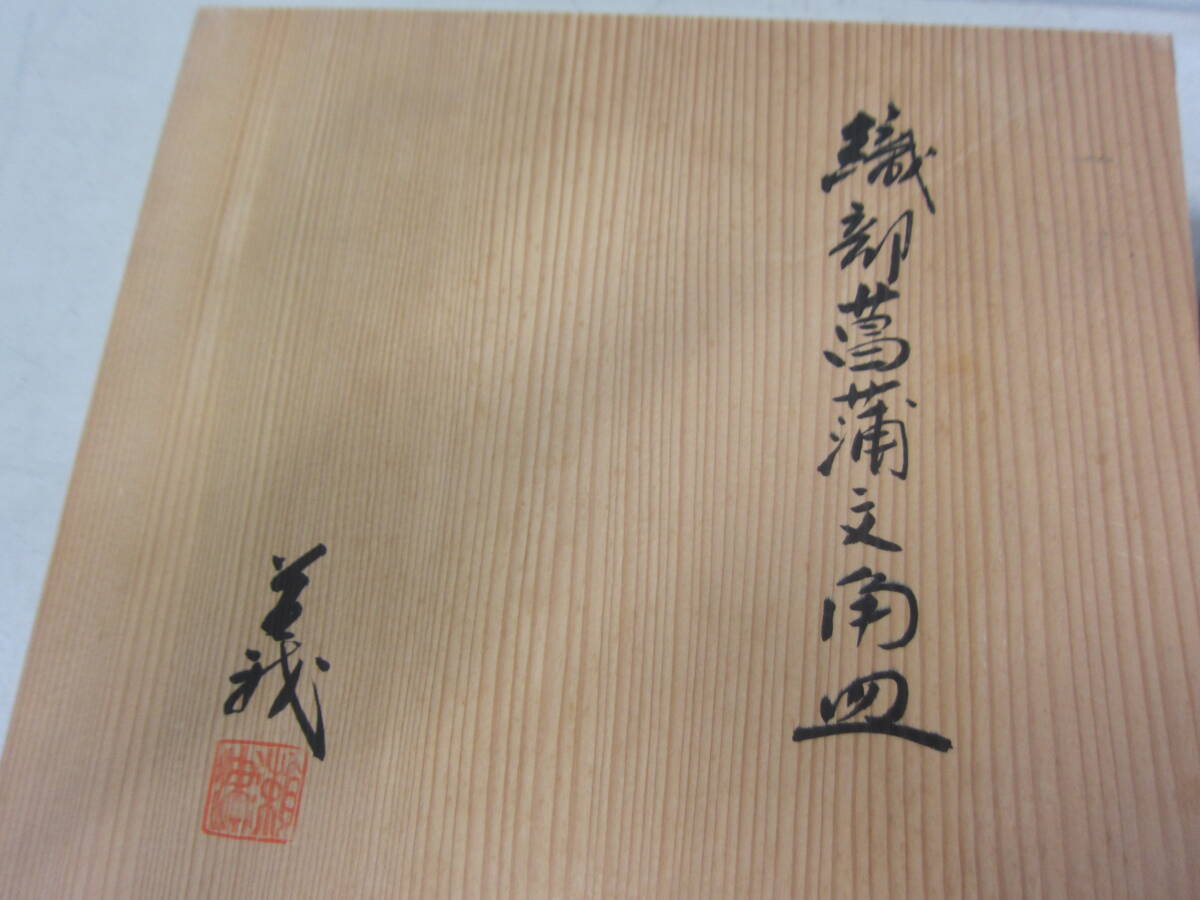 織部菖蒲文角皿
義